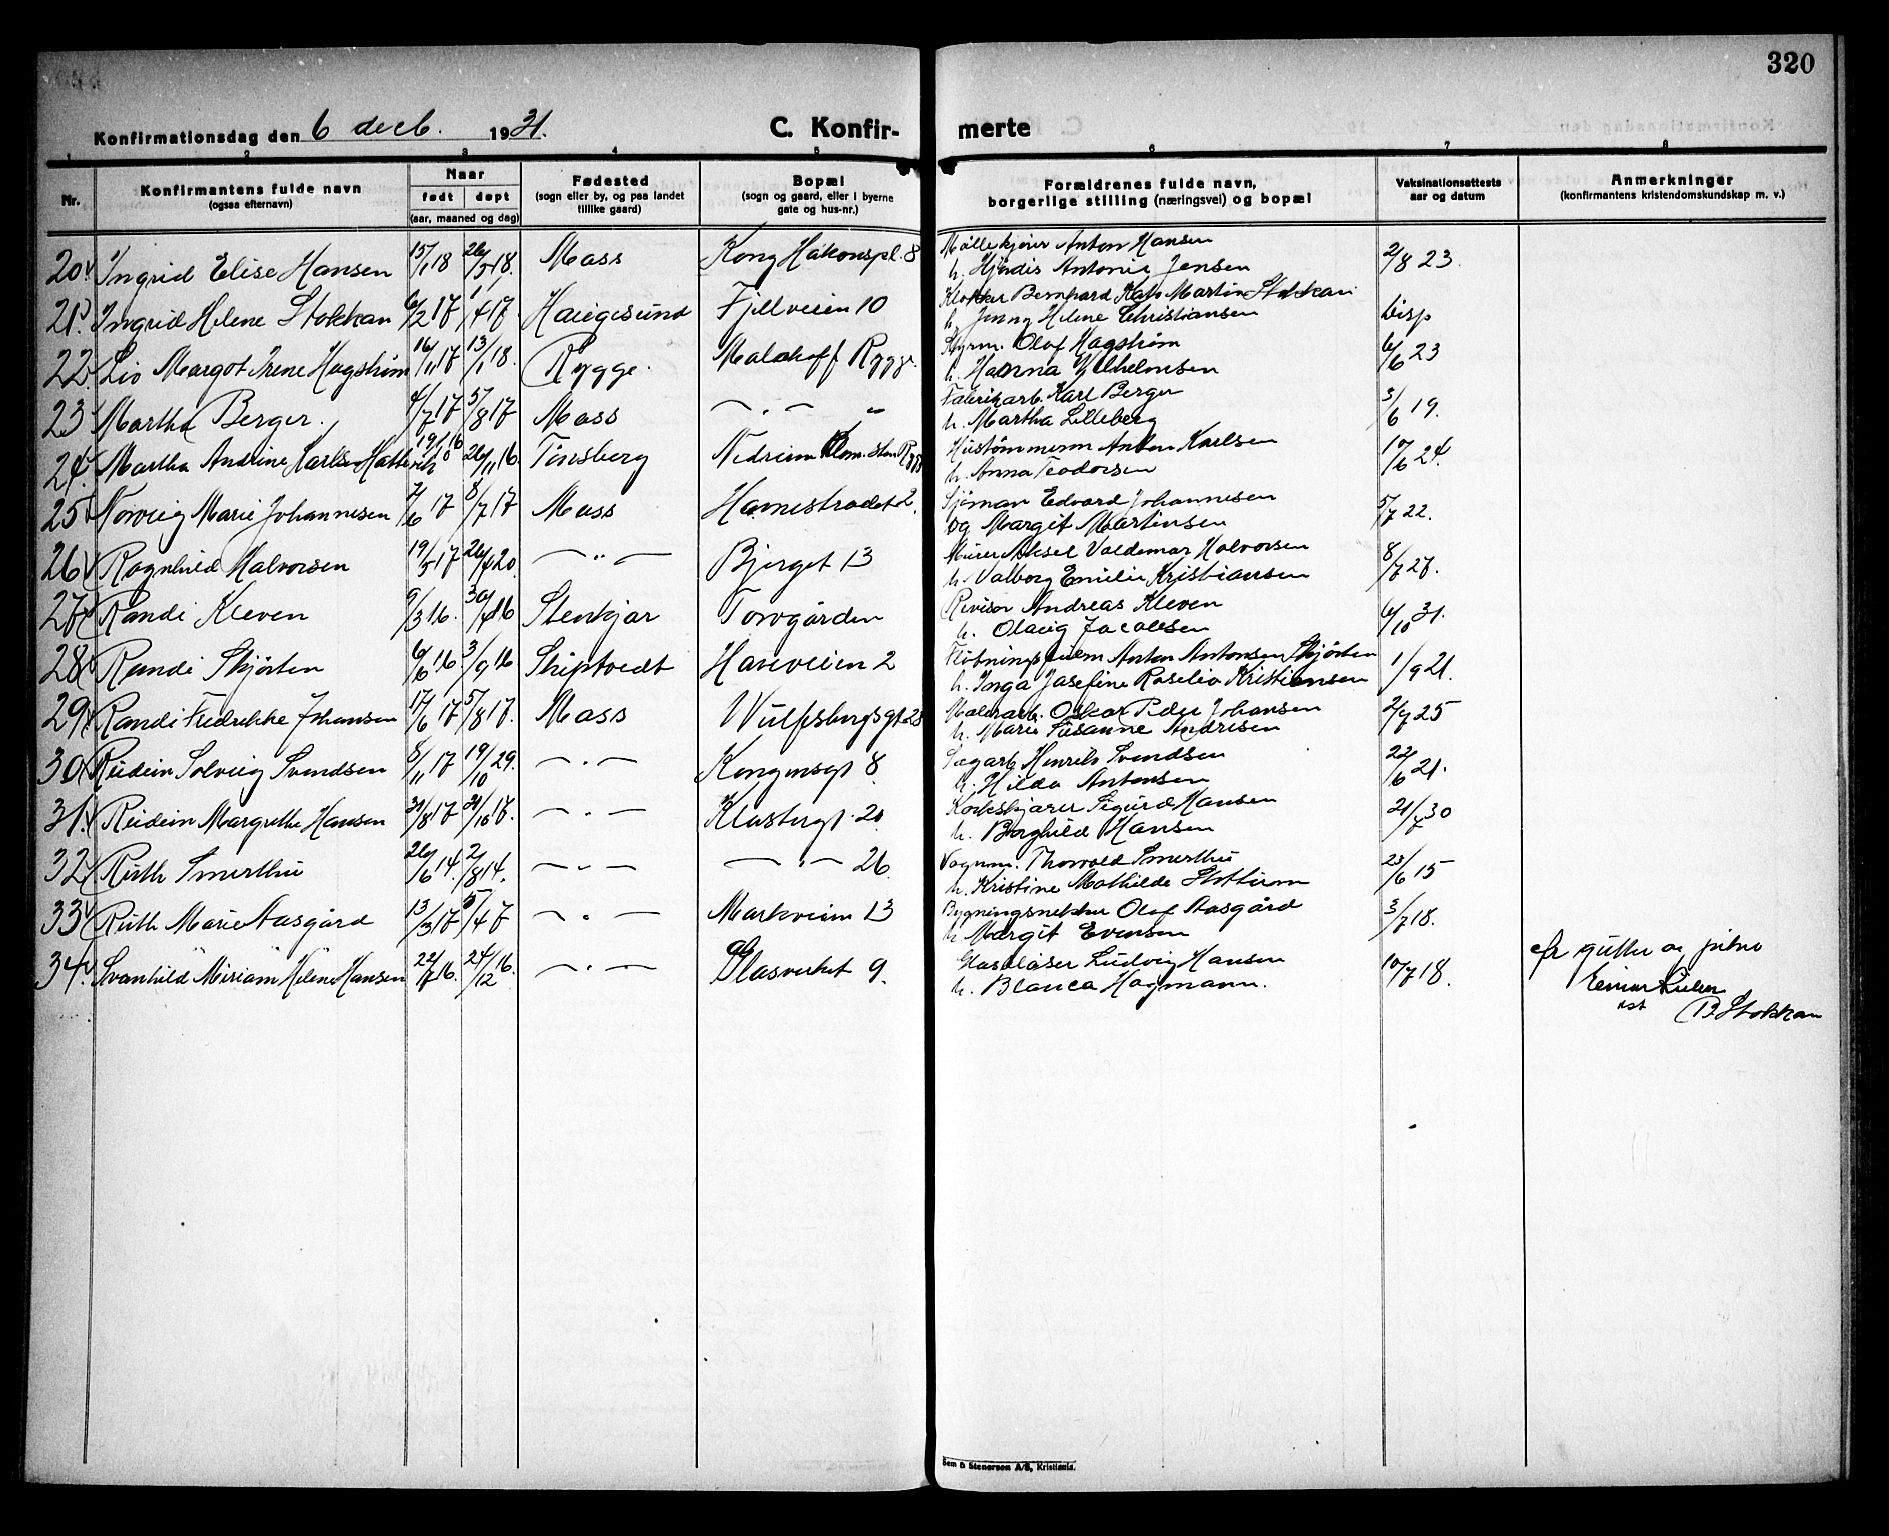 320
Konfirmationsdag den 6 decb. 1931.
C. Konfir- merte
1 2 3 4 5 6 7 8
Nr. Konfirmantens fulde navn (ogsaa efternavn) Naar født døpt (aar, maaned og dag) Fødested (sogn eller by, og paa landet tillike gaard) Bopæl (sogn og gaard, eller i byerne gate og hus-nr.) Forældrenes fulde navn, borgerlige stilling (næringsvei) og bopæl Vaksinationsattests aar og datum Anmerkninger (konfirmantens kristendomskundskap m. v.)
20 Ingrid Elise Hansen 15/1 18 26/5 18. Moss Kong Håkonspl. 8 Møllekjører Anton Hansen
h. Hjørdis Antonie Jensen 2/8 23.
21 Ingrid Helene Stokkan 6/2 17 1/4 17 Haugesund Fjellveien 10 Klokker Bernhard Martin Stokkan
h. Jenny Helene Christiansen Disp
22. Liv Margot Irene Hagstrøm 16/11 17 13/1 18. Rygge. Malakoff Rygge. Styrm. Olof Hagstrøm
h. Hanna Vilhelmsen 6/6 23
23 Martha Berger. 4/7 17 5/8 17 Moss — " — " Fabrikarb. Karl Berger
h. Martha Lilleberg 3/6 19.
24. Martha Andrine Karlsen 19/10 16 26/11 16. Tønsberg Nedreim Rygge Hustømmerm Anton Karlsen
h. Anna Teodorsen 17/6 24.
25 Norveig Marie Johannesen 7/6 17 8/7 17 Moss Havnestredet 2. Sjøman Edvard Johannesen
og Margit Martinsen 5/7 22.
26 Ragnhild Halvorsen 19/5 17 26/4 20. — " — Bjerget 13 Murer Aksel Valdemar Halvorsen
h. Valborg Emilie Kristiansen 8/7 27.
27 Randi Kleven 9/3 16. 30/4 16 Stenkjær Torvgården Revisor Andreas Kleven
h. Olaug Jacobsen 6/10 31.
28 Randi Skjørten 6/6 16 3/9 16 Skiptvedt Hareveien 2 Fløtningsform Anton Antonsen Skjørten
h. Inga Josefine Roselia Kristiansen 1/9 21.
29 Randi Fredrikke Johansen 17/6 17 5/8 17. Moss Wulfsbergsgt. 28 Malerarb. Oskar Peder Johansen
h. Marie Susanne Andresen 2/7 25
30 Reidein Solveig Svendsen 8/11 17 19/10 29. — " — Kongensgt 8. Sagarb Henrik Svendsen
h. Hilda Antonsen 22/6 21.
31. Reidein Margrethe Hansen 31/8 17 21/10 17. — " — Klostergt. 20 Korkskjærer Sigurd Hansen
h. Borghild Hansen 21/7 30
32 Ruth Smerthu 26/6 14. 2/8 14. — " — — " — 26 Vognm. Thorvald Smerthu
h. Kristine Mathilde Slottum 23/6 15
33 Ruth Marie Aasgård 13/3 17 5/4 17 — " — Markveien 13 Bygningsnekker Olaf Aasgård
h Margit Evensen 3/7 18.
34. Svanhild Miriam Helene Hansen 22/7 16. 24/12 16. — " — Glasverket 9. Glasblåser Ludvig Hansen
h. Blanca Hagmann. 10/7 18.
for gutter og piker
Einar
B Stokkan
Sem & Stenersen A/S, Kristiania.